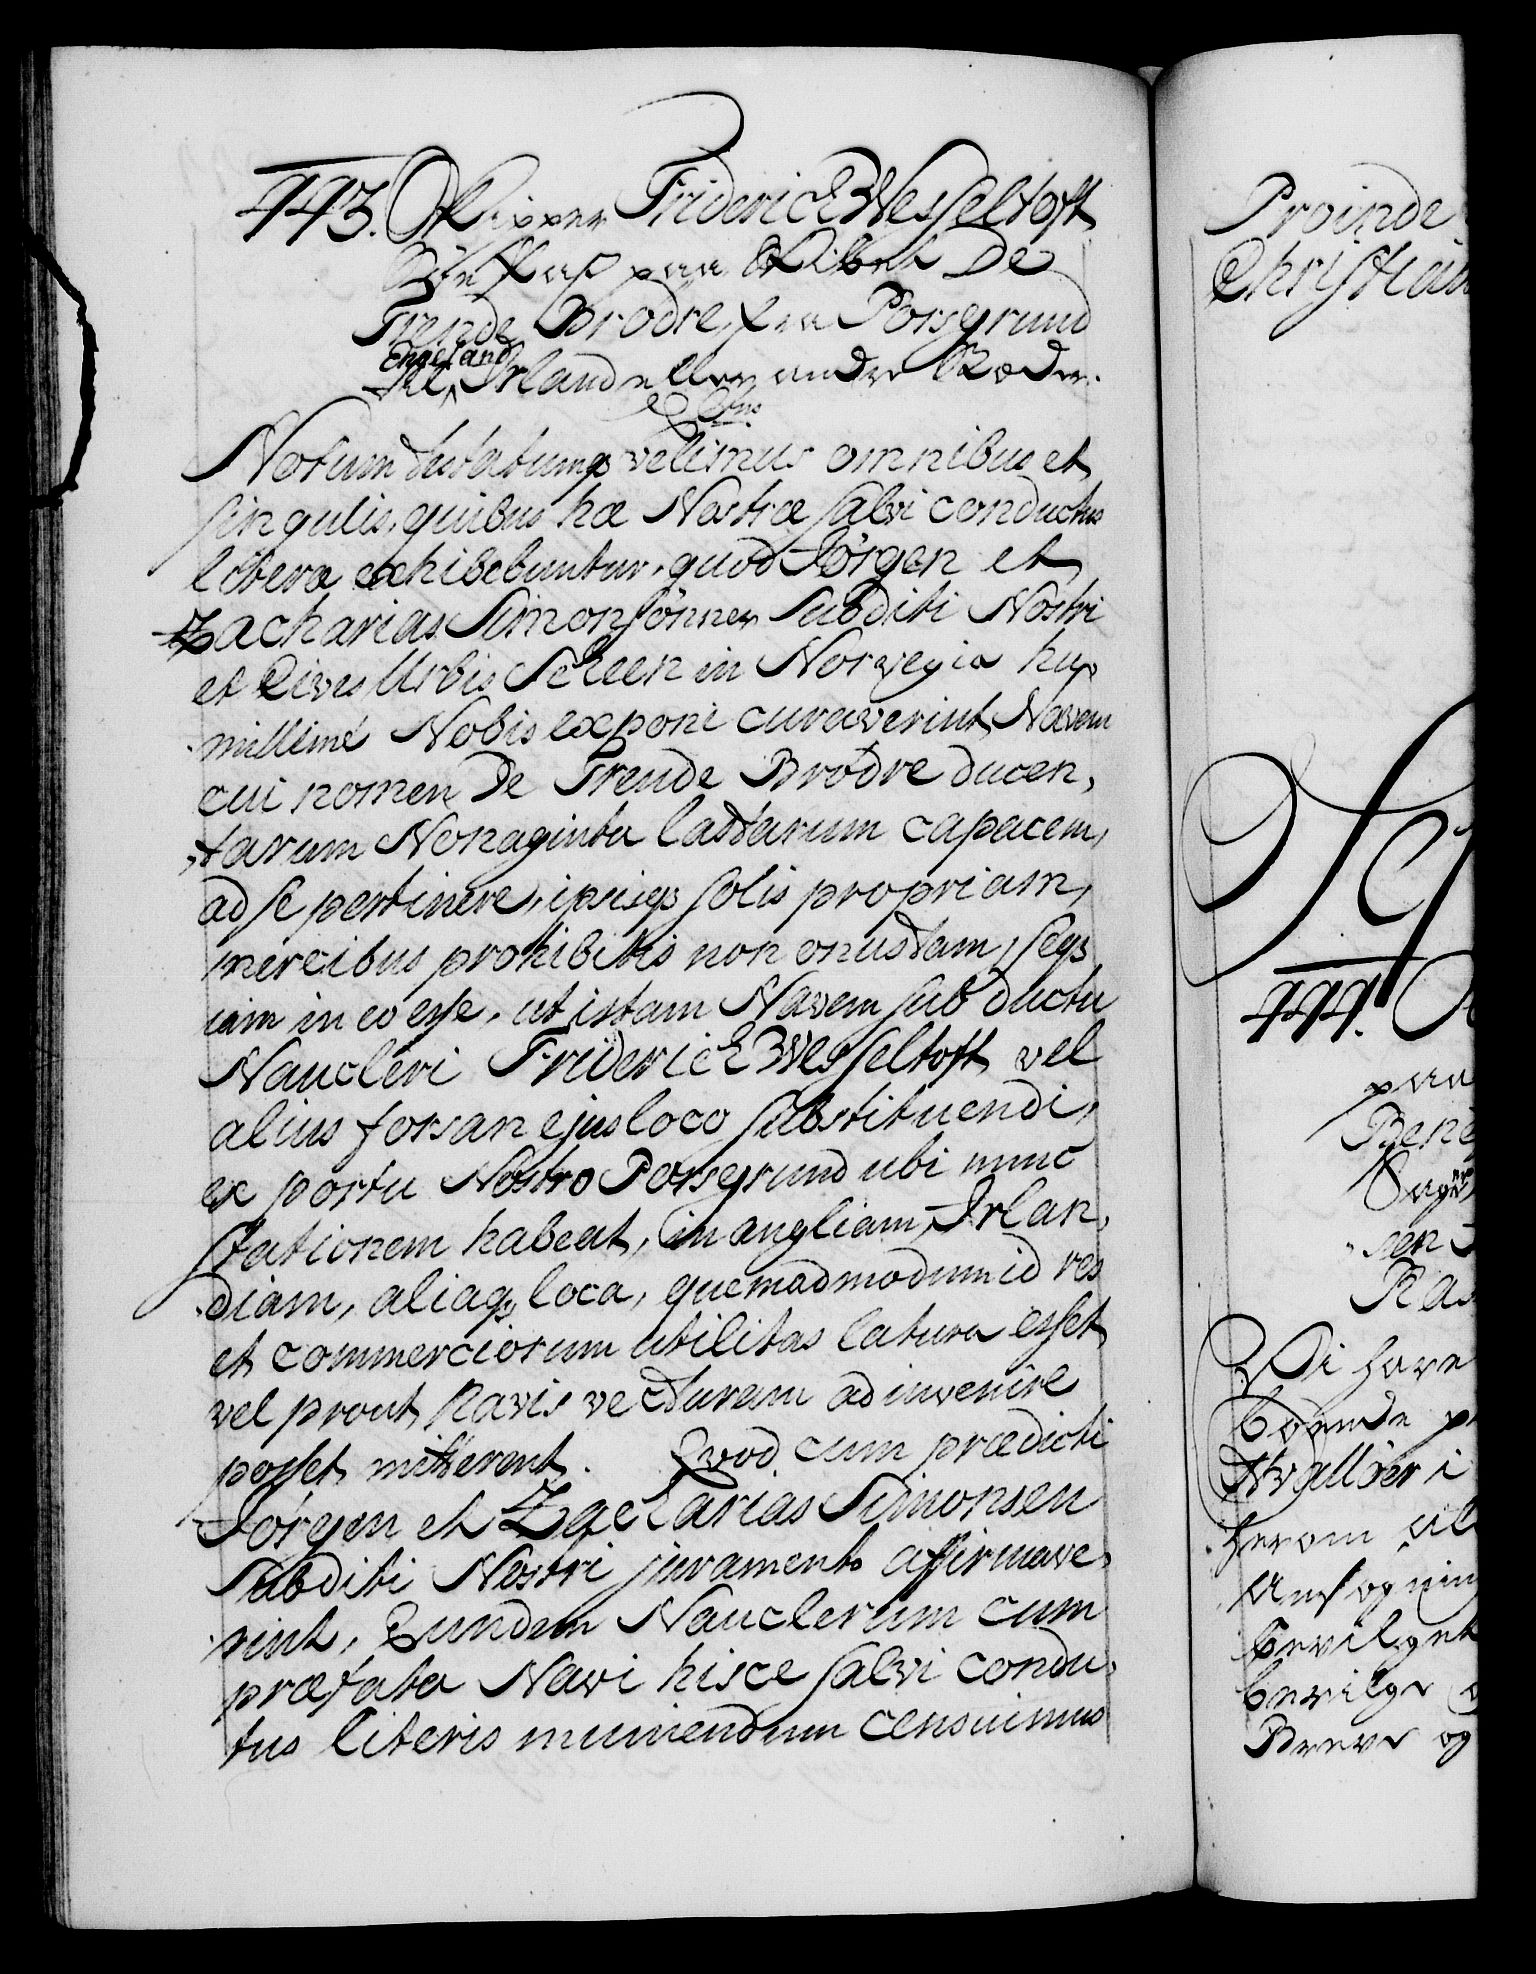 443. Skipper Friderich Wesseltoft
Söe Pas paa Skibet De
Trende Brödre, fra Porsgrund
Engeland
til Irland eller andre Stæder.
Notum testatumq velimus omnibus et
singulis, quibus hæ Nostræ salvi conductus
literæ exhibebuntur, quod Jörgen et
Zacharias Simonsönner Subditi Nostri
et Cives Urbis Scheen in Norvegia hu,
millimé Nobis exponi curaverint, Navem
cui nomen De Trende Brödre ducen,
,tarum Nonaginta lastarum capacem,
ad se pertinere, ipsisq solis propriam,
mercibus prohibitis non onustam, seqs
iam in eo esse, ut istam Navem sub ductu
Naucleri Friderich Wesseltoft vel
alius forsan ejus loco substituendi,
ex portu Nostro Porsgrund ubi nunc
stationem habeat, in angliam, Irlan,
diam, aliaq loca, quemadmodum id res
et commerciorum utilitas latura esset
vel prout Navis vecturam ad invenire
posset mitterent. Qvod cum prædicti
Jörgen et Zacharias Simonsen
Subditi Nostri juramento affirmave,
rint, Eundem Nauclerum cum
præfata Navi hisce salvi condu,
tus literis muniendum censuimus
Proinde
Christian
444.
paa
Bene
sen
Ras
Vi have
boende p
i
herom al
Ansøgning
bevilget
bevilge
Breve og